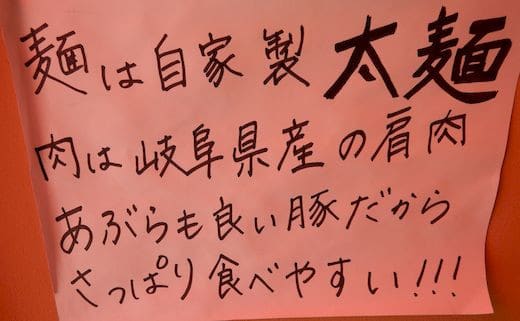 麺は自家製太麺
肉は岐阜県産の肩肉
あぶらも良い豚だから
さっぱり食べやすい!!!